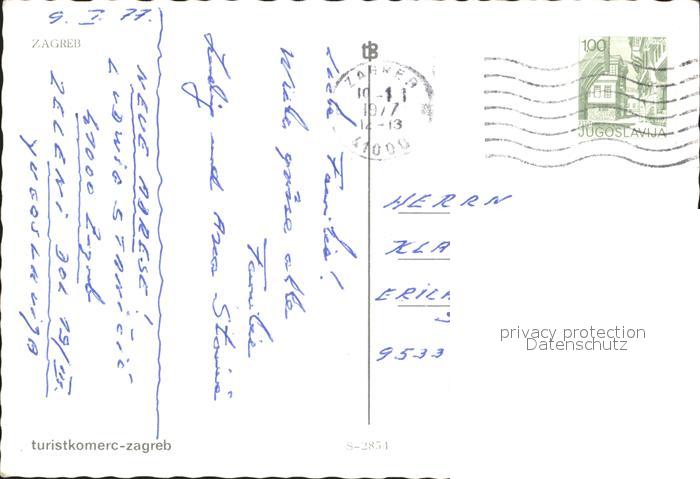 9. I. 77.
ZAGREB
NEUE ADRESE!
LUDWIG STANIČIĆ
41000 Zagreb
ZELENI DOL 19/III.
YUGOSLAVIJA
Liebe Familie!
Viele grüsse alle
Familie
und Ana
ZAGREB
10-1
1977
12-13
41000
100
JUGOSLAVIJA
HERRN
KLA
ERIC
9533
privacy protection
Datenschutz
turistkomerc-zagreb
S-2854